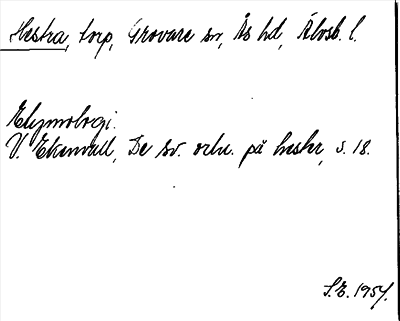 Hestra, torp, Grovare sn, Ås hd, Älvsb. l.
Etymologi.
V. Ekenvall, De sv. ortn. på hester, s. 18.
S.E. 1954.